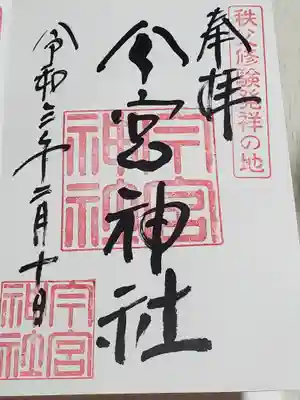 秩父修験発祥の地
奉拝
今宮神社
今宮神社
令和六年二月十日
今宮神社